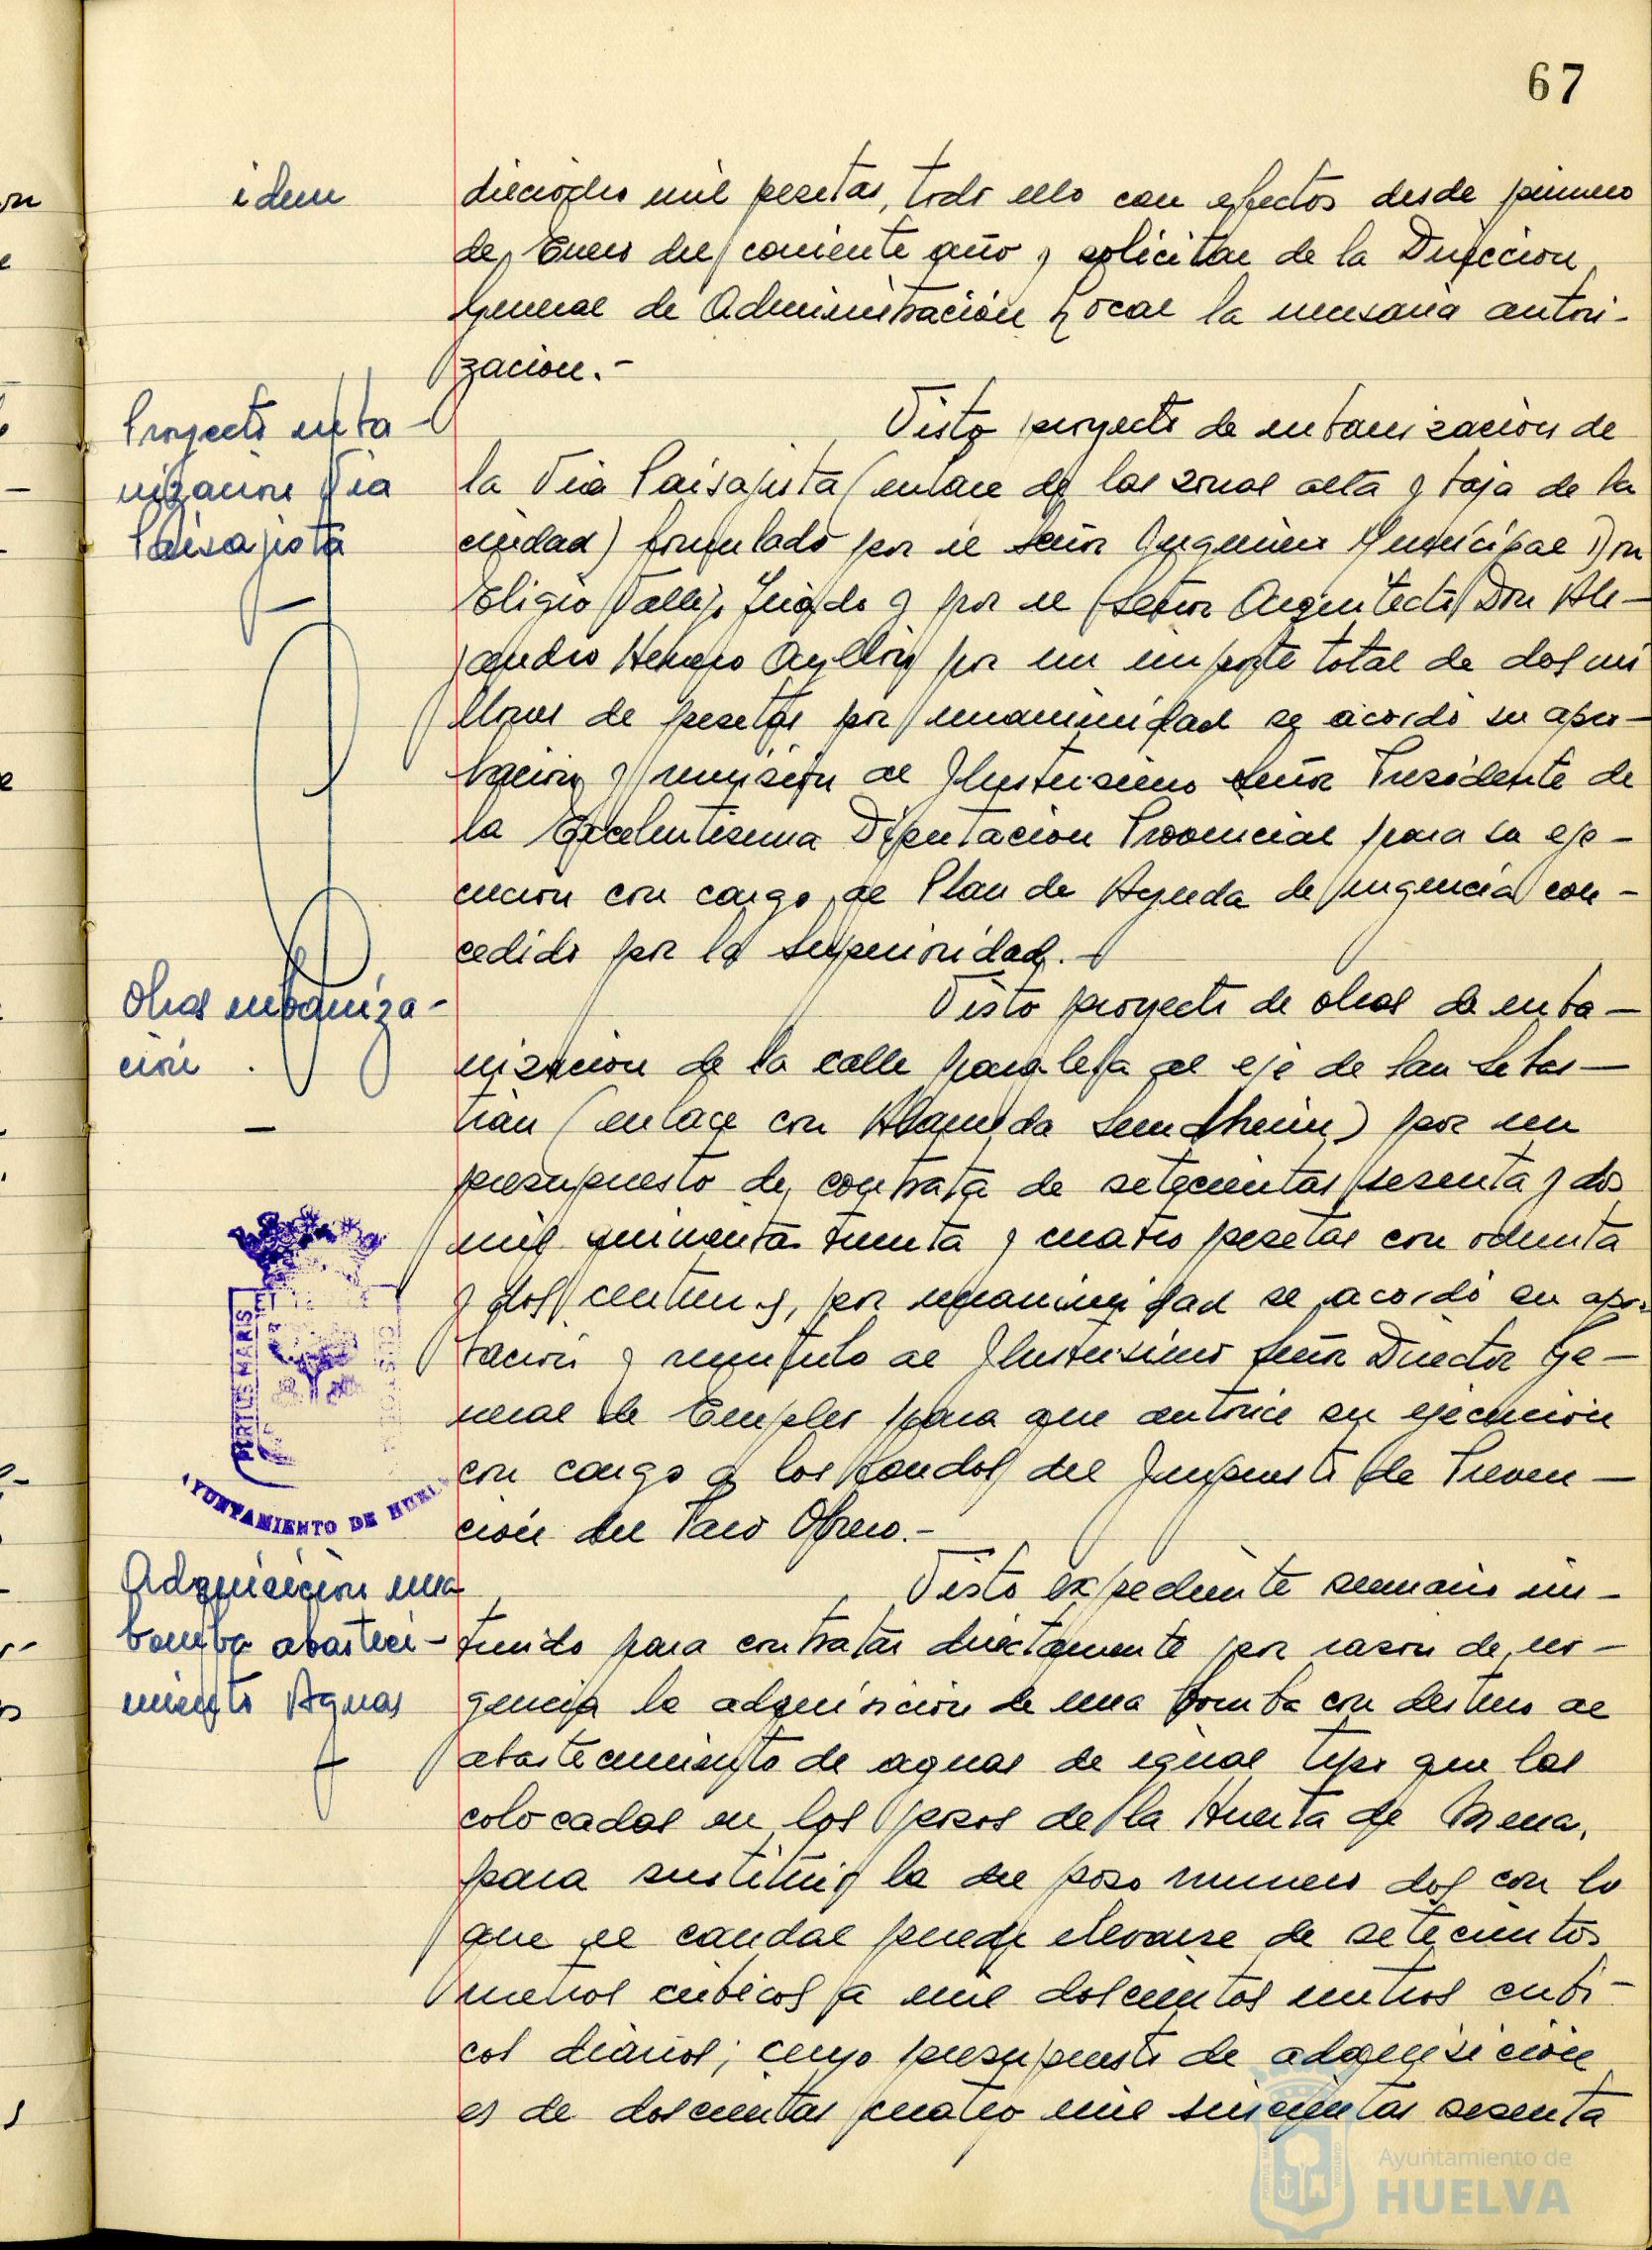 67
idem
dieciocho mil pesetas, todo ello con efectos desde primero
de Enero del corriente año y solicitar de la Dirección
General de Administración Local la necesaria autori-
zacion.-
Proyecto urba-
nización Via
Paisajista
Visto proyecto de urbanización de
la Via Paisajista (enlace de las zonas alta y baja de la
ciudad) formulado por el señor Ingeniero Municipal Don
Eligio Vallejo y por el Señor Arquitecto Don Ale-
jandro Herrero Ayllón por un importe total de dos mi
llones de pesetas por unanimidad se acordó su apro-
bación y remisión al Ilustrisimo señor Presidente de
la Excelentisima Diputacion Provincial para su eje-
cución con cargo al Plan de Ayuda de urgencia con-
cedido por la Superioridad.-
Obras urbaniza-
ción
Visto proyecto de obras de urba-
nización de la calle paralela al eje de San Sebas-
tián (enlace con Alameda Sundheim) por un
presupuesto de contrata de setecientas sesenta y dos
mil quinientas treinta y cuatro pesetas con ochenta
y dos centimos, por unanimidad se acordó su apro-
bación y remitirlo al Ilustrisimo Señor Director Ge-
neral de Empleo para que autorice su ejecución
con cargo a los fondos del Impuesto de Preven-
ción del Paro Obrero.-
PORTUS MARIS ET
AYUNTAMIENTO DE HUELVA
Adquisición una
bomba abasteci-
miento Aguas
Visto expediente sumario ins-
truido para contratar directamente por razon de ur-
gencia la adquisición de una bomba con destino al
abastecimiento de aguas de igual tipo que las
colocadas en los pozos de la Huerta de Mena,
para sustituir la del pozo numero dos con lo
que el caudal puede elevarse de setecientos
metros cúbicos a mil doscientos metros cubi-
cos diarios; cuyo presupuesto de adquisición
es de doscientas cuatro mil seiscientas sesenta
Ayuntamiento de
HUELVA